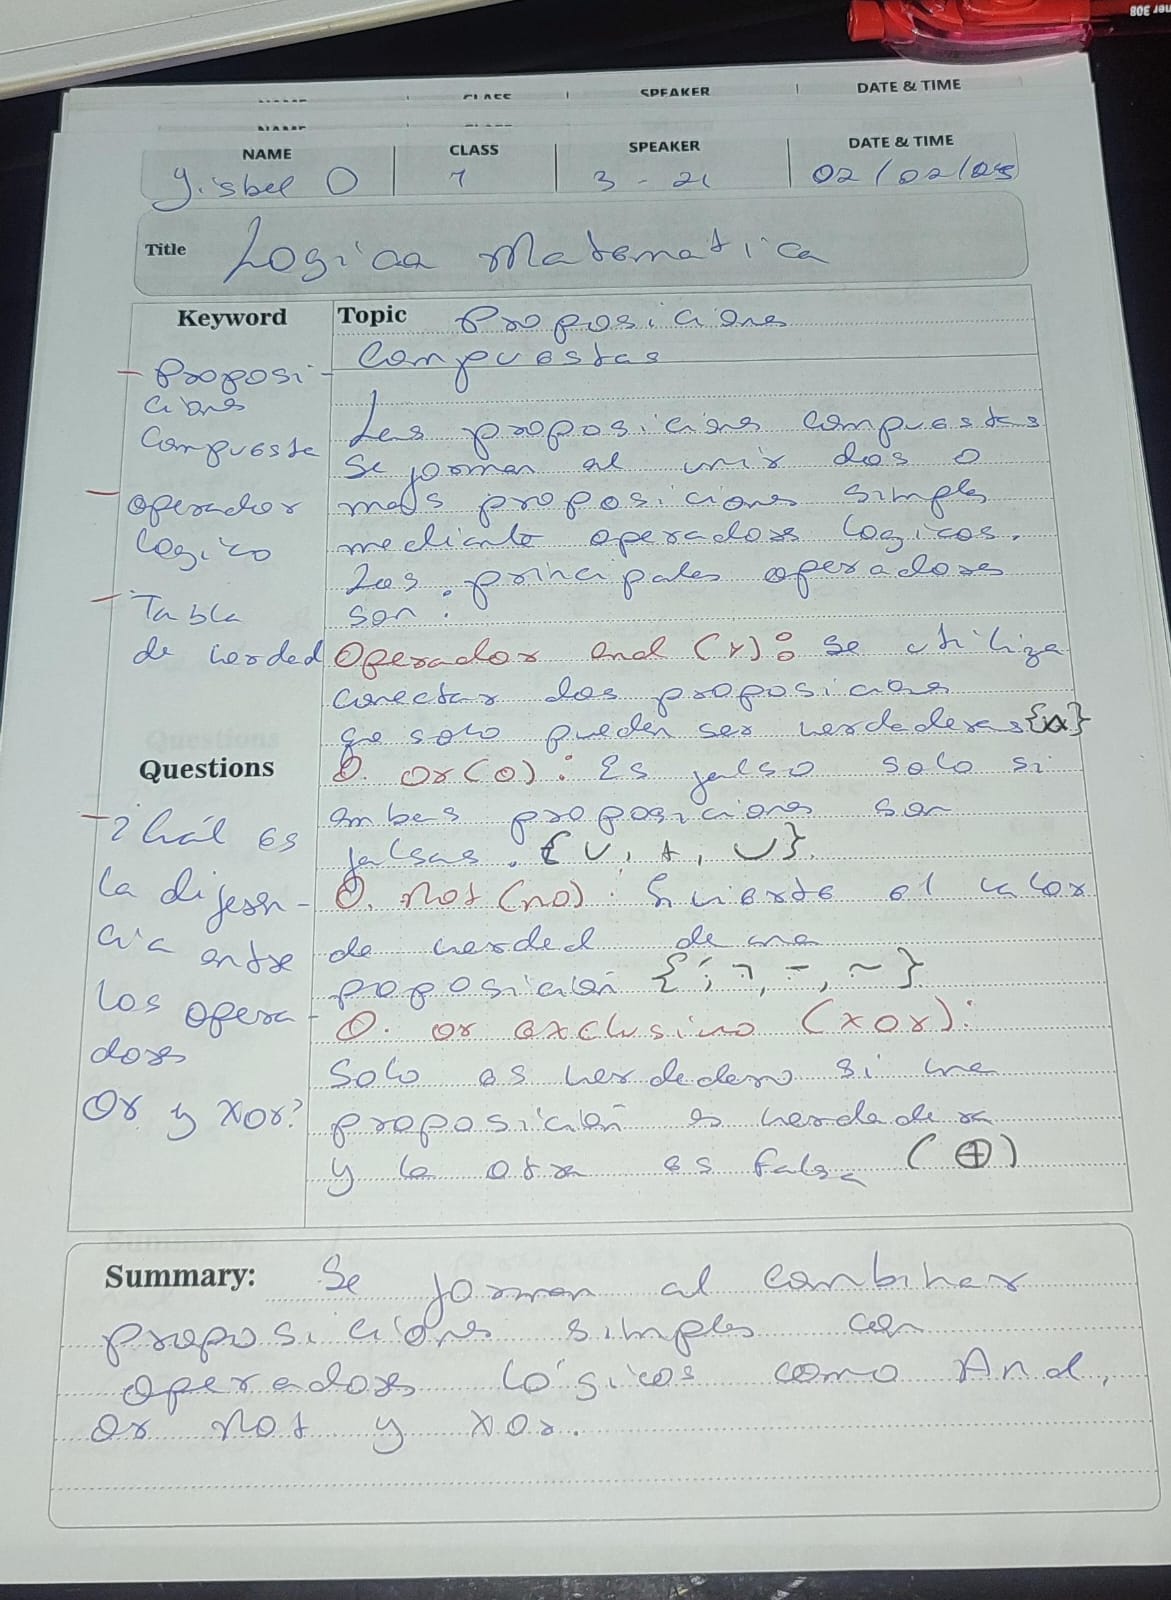 CLASS
SPEAKER
DATE & TIME
NAME
CLASS
SPEAKER
DATE & TIME
Yisbel O
7
3 - 21
02/02/025
Title
Logica Matematica
Keyword
- Proposi -
ciones
Compuesta
- Operador
logico
- Tabla
de verdad
Topic Proposiciones
Compuestas
Las proposiciones compuestas
se forman al unir dos o
mas proposiciones simples
mediante operadores logicos.
Los principales operadores
son:
Operador and (y): se utiliza
conectar dos proposiciones
que solo pueden ser verdaderas {∧}
O. or (o): Es falso solo si
ambas proposiciones son
falsas. {∨, +, ∪}.
O. not (no): Invierte el valor
de verdad de una
proposición { ', ¬, -, ~ }
O. or exclusivo (xor):
Solo es verdadero si una
proposición es verdadera
y la otra es falsa (⊕)
Questions
- ¿Cuál es
la diferen-
cia entre
los opera-
dores
Or y Xor?
Summary: Se forman al combinar
proposiciones simples con
operadores lógicos como And,
or not y xor.